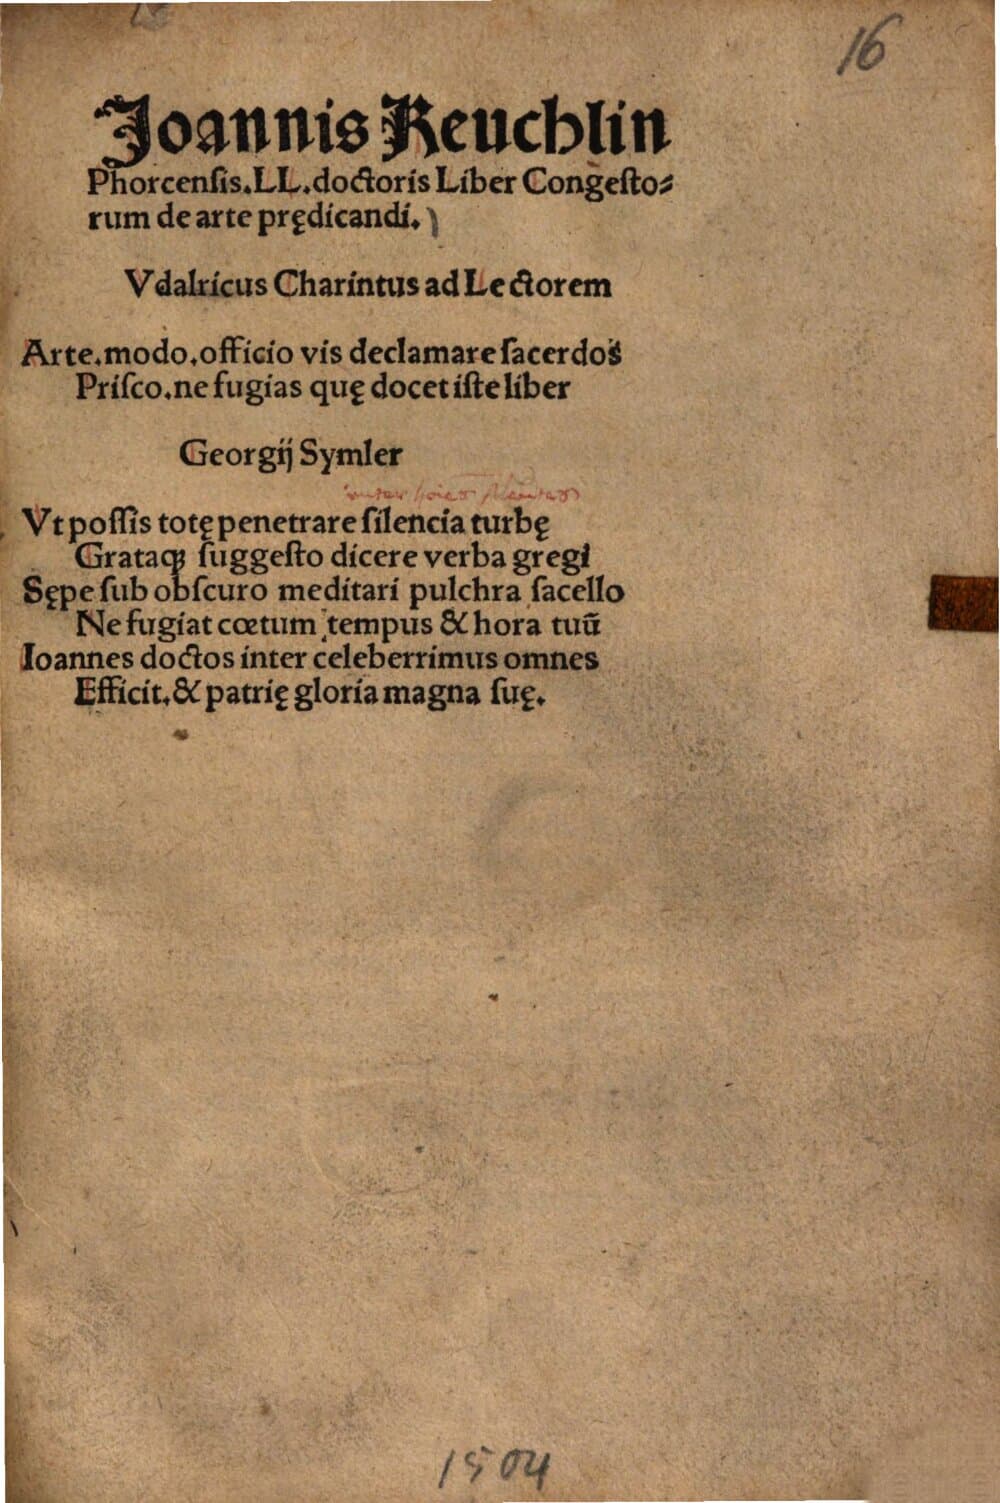 16
Joannis Reuchlin
Phorcensis.LL.doctoris Liber Congesto⸗
rum de arte prędicandi.
Vdalricus Charintus ad Lectorem
Arte.modo.officio vis declamare sacerdos
Prisco.ne fugias quę docet iste liber
Georgij Symler
Vt possis totę penetrare silencia turbę
Grataqꝫ suggesto dicere verba gregi
Sępe sub obscuro meditari pulchra sacello
Ne fugiat cœtum tempus & hora tuū
Ioannes doctos inter celeberrimus omnes
Efficit.& patrię gloria magna suę.
1504